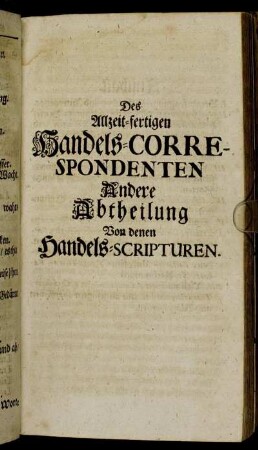 Des
Allzeit-fertigen
Handels-CORRE-
SPONDENTEN
Andere
Abtheilung
Von denen
Handels-SCRIPTUREN.